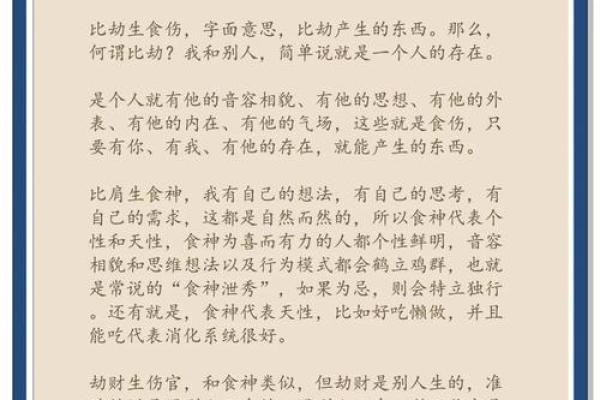 比劫生食伤，字面意思，比劫产生的东西。那么，
何谓比劫？我和别人，简单说就是一个人的存在。
是个人就有他的音容相貌、有他的思想、有他的外
表、有他的内在、有他的气场，这些就是食伤，只
要有你、有我、有他的存在，就能产生的东西。
比肩生食神，我有自己的想法，有自己的思考，有
自己的需求，这都是自然而然的，所以食神代表个
性和天性，食神为喜而有力的人都个性鲜明，音容
相貌和思维想法以及行为模式都会鹤立鸡群，也就
是常说的“食神泄秀”，如果为忌，则会特立独行
。还有就是，食神代表天性，比如好吃懒做，并且
能吃代表消化系统很好。
劫财生伤官，和食神类似，但劫财是别人生的，准